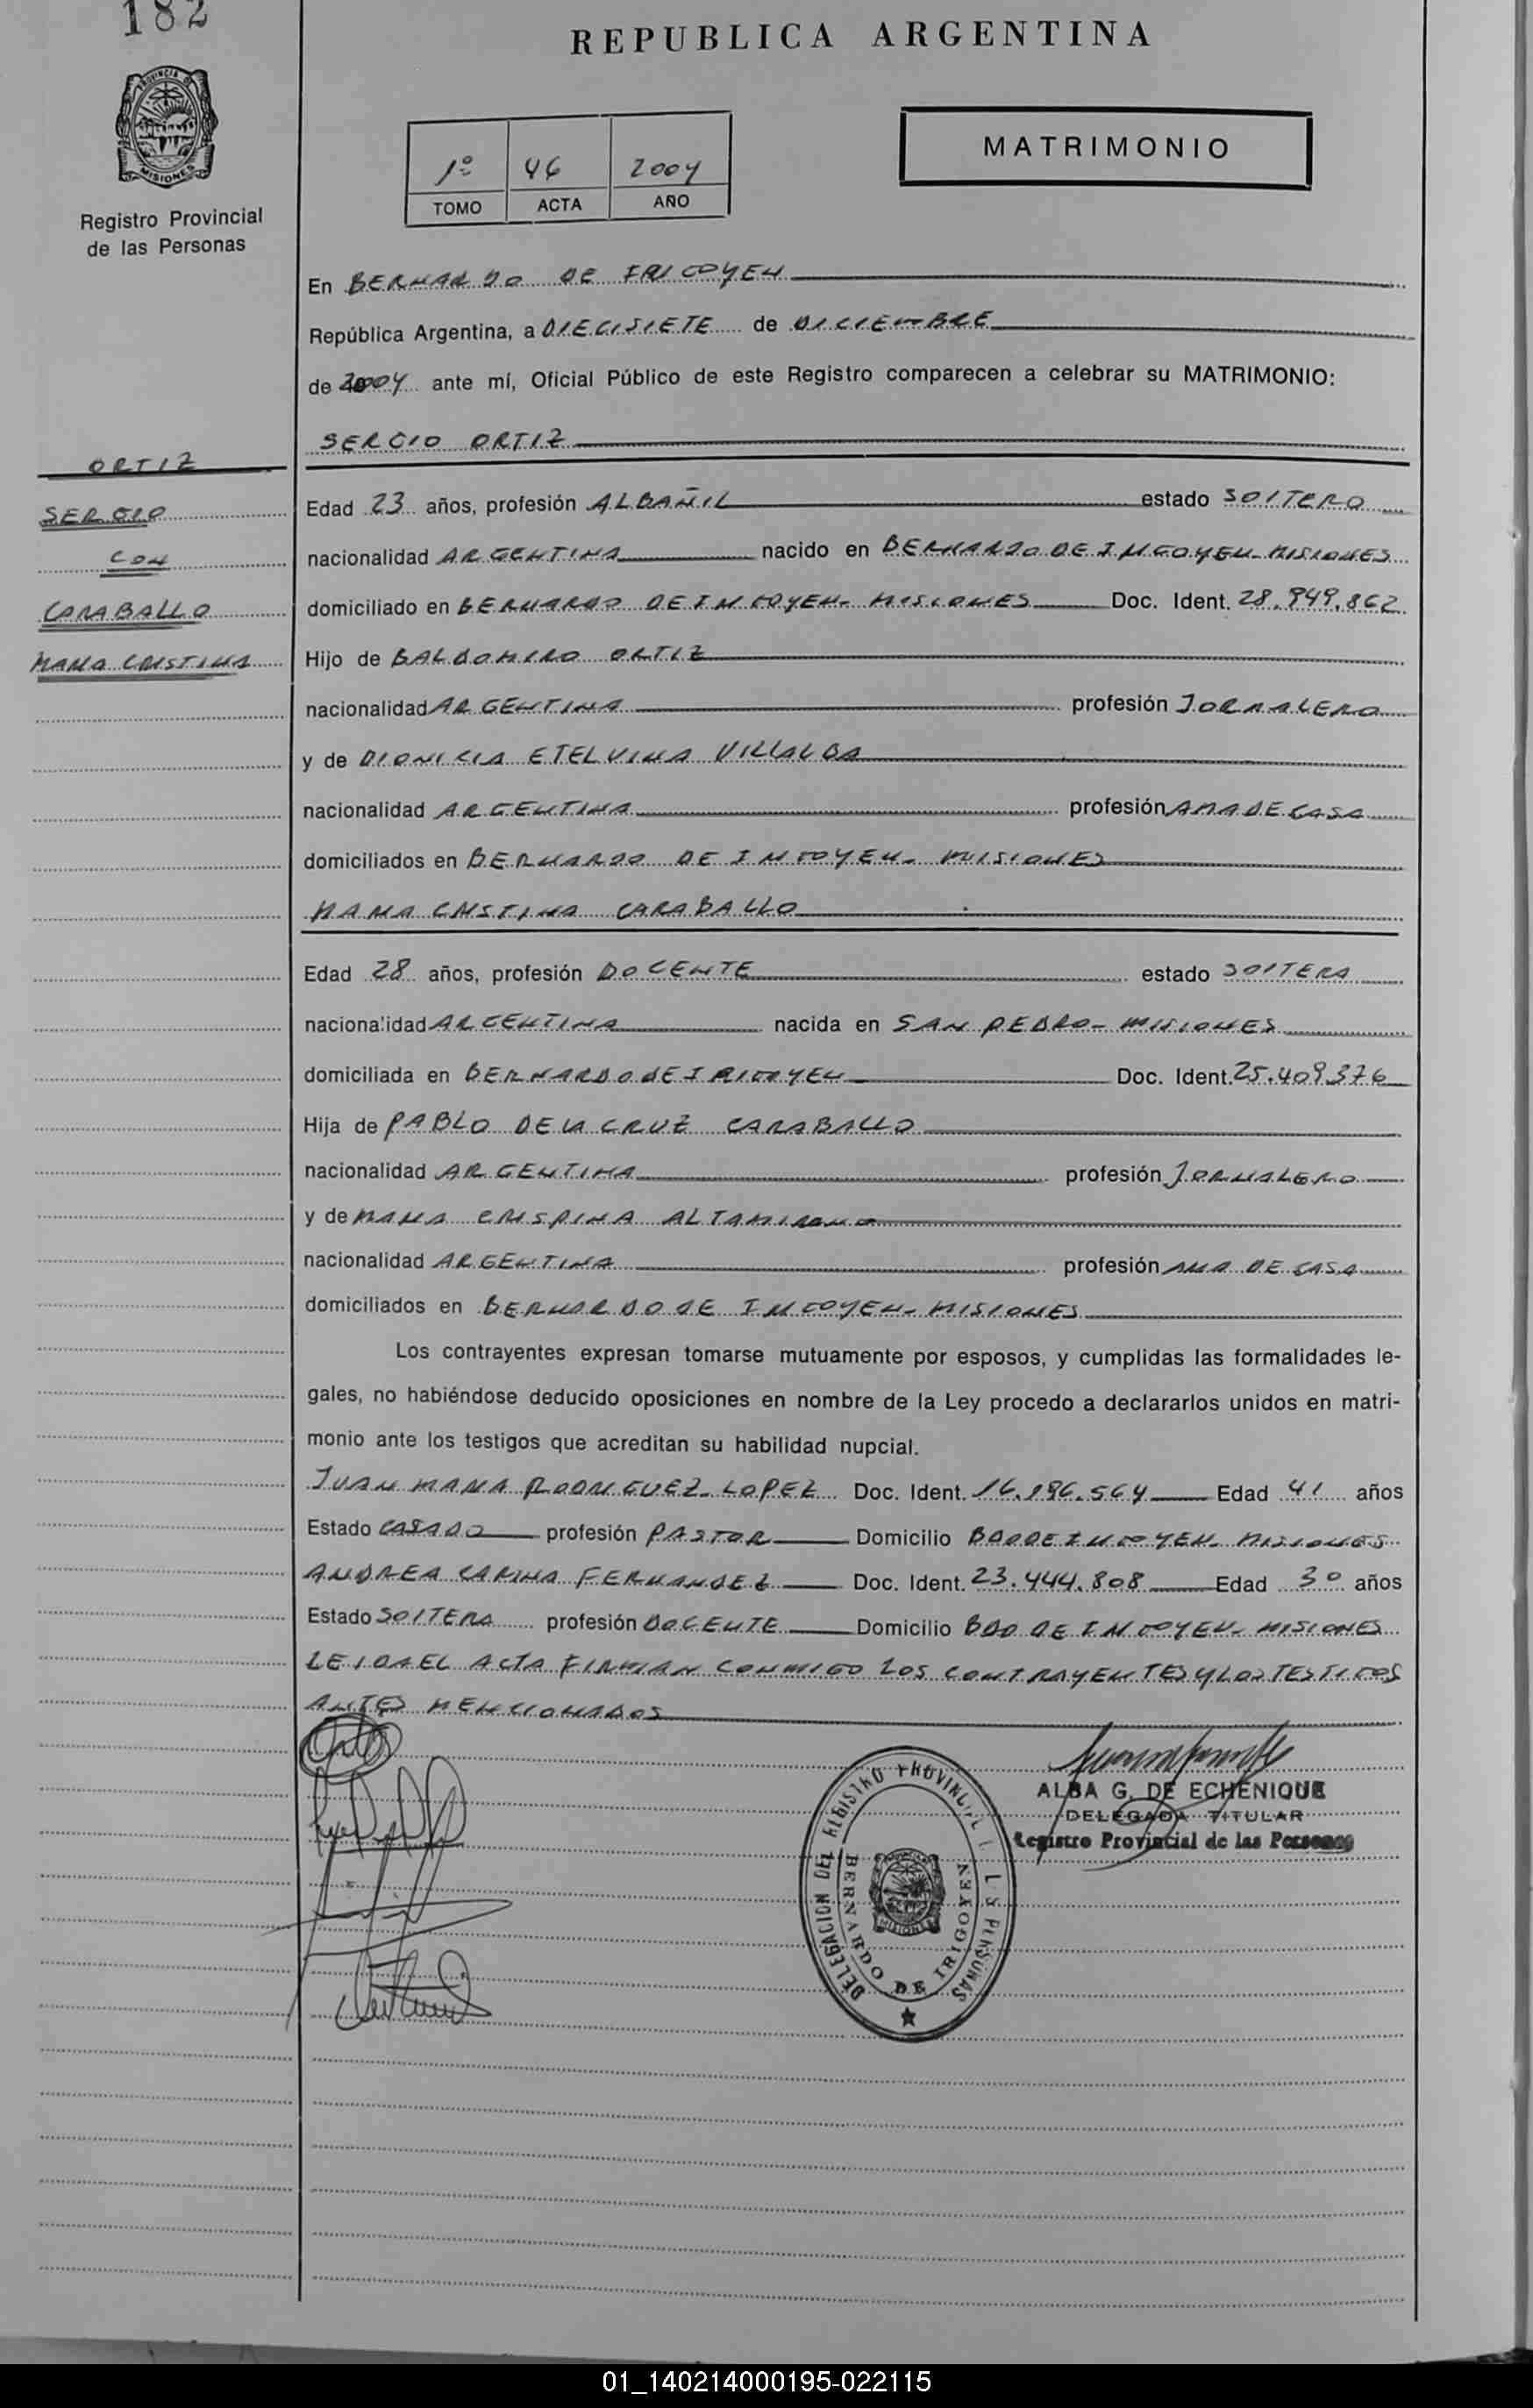 182
REPUBLICA ARGENTINA
PROVINCIA DE MISIONES
Registro Provincial
de las Personas
1º 46 2004
TOMO ACTA AÑO
MATRIMONIO
En BERNARDO DE IRIGOYEN
República Argentina, a DIECISIETE de DICIEMBRE
de 2004 ante mí, Oficial Público de este Registro comparecen a celebrar su MATRIMONIO:
SERGIO ORTIZ
ORTIZ
SERGIO
CON
CARABALLO
MARIA CRISTINA
Edad 23 años, profesión ALBAÑIL estado SOLTERO
nacionalidad ARGENTINA nacido en BERNARDO DE IRIGOYEN- MISIONES
domiciliado en BERNARDO DE IRIGOYEN- MISIONES Doc. Ident. 28.949.862
Hijo de BALDOMERO ORTIZ
nacionalidad ARGENTINA profesión JORNALERO
y de DIONICIA ETELVINA VILLALBA
nacionalidad ARGENTINA profesión AMA DE CASA
domiciliados en BERNARDO DE IRIGOYEN- MISIONES
MARIA CRISTINA CARABALLO
Edad 28 años, profesión DOCENTE estado SOLTERA
nacionalidad ARGENTINA nacida en SAN PEDRO- MISIONES
domiciliada en BERNARDO DE IRIGOYEN Doc. Ident. 25.409.376
Hija de PABLO DE LA CRUZ CARABALLO
nacionalidad ARGENTINA profesión JORNALERO
y de MARIA CRISPINA ALTAMIRANO
nacionalidad ARGENTINA profesión AMA DE CASA
domiciliados en BERNARDO DE IRIGOYEN- MISIONES
Los contrayentes expresan tomarse mutuamente por esposos, y cumplidas las formalidades le-
gales, no habiéndose deducido oposiciones en nombre de la Ley procedo a declararlos unidos en matri-
monio ante los testigos que acreditan su habilidad nupcial.
JUAN MARIA RODRIGUEZ LOPEZ Doc. Ident. 16.186.564 Edad 41 años
Estado CASADO profesión PASTOR Domicilio BDO DE IRIGOYEN- MISIONES
ANDREA CARINA FERNANDEZ Doc. Ident. 23.444.808 Edad 30 años
Estado SOLTERA profesión DOCENTE Domicilio BDO DE IRIGOYEN- MISIONES
LEIDA EL ACTA FIRMAN CONMIGO LOS CONTRAYENTES Y LOS TESTIGOS
ANTES MENCIONADOS
ALBA G. DE ECHENIQUE
DELEGADA TITULAR
Registro Provincial de las Personas
DELEGACION DEL REGISTRO PROVINCIAL DE LAS PERSONAS
BERNARDO DE IRIGOYEN
MISIONES
01_140214000195-022115